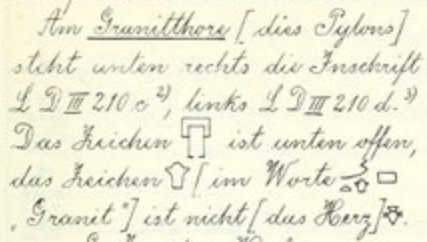 Am Granitthore [dies Pylons]
steht unten rechts die Inschrift
L D III 210 c ²⁾, links L D III 210 d. ³⁾
Das Zeichen ist unten offen,
das Zeichen [im Worte
„Granit“] ist nicht [das Herz]